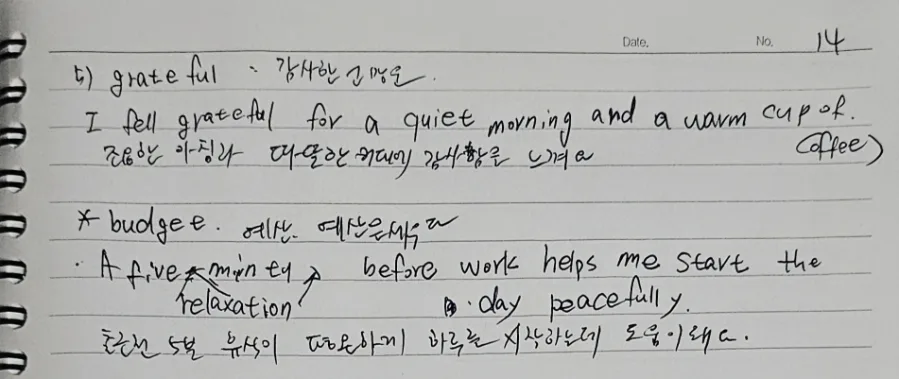 Date. No. 14
5) grateful : 감사한 고마운.
I fell grateful for a quiet morning and a warm cup of.
coffee)
조용한 아침과 따뜻한 감사함을 느껴요
* budget. 예산. 예산을세우다
· A five minty before work helps me start the
relaxation · day peacefully.
출근전 5분 휴식이 평온하게 하루를 시작하는데 도움이돼요.